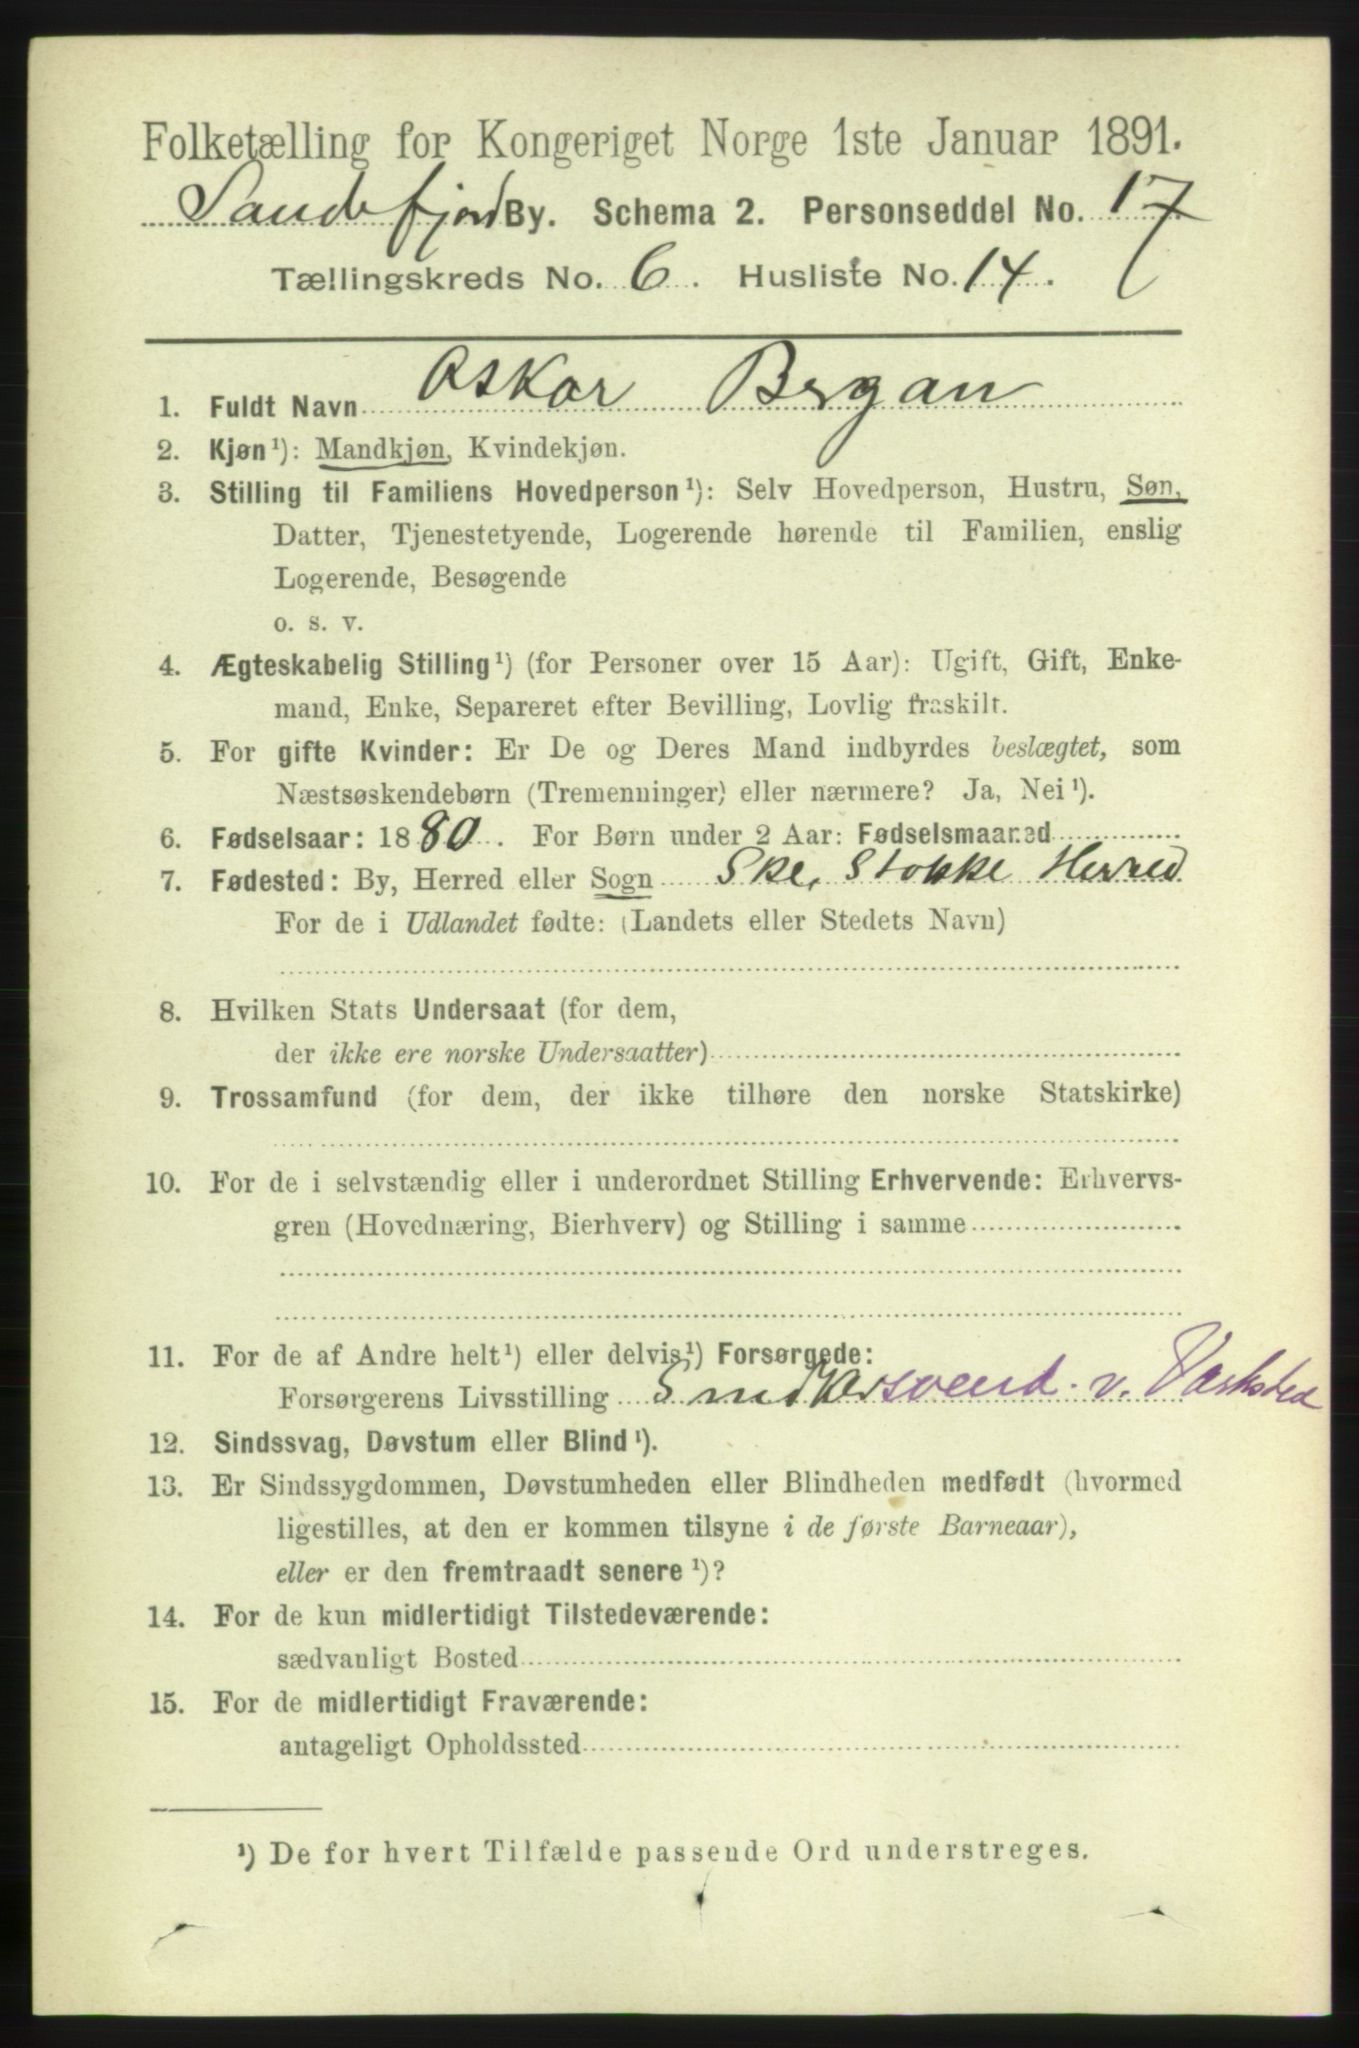 Folketælling for Kongeriget Norge 1ste Januar 1891.
Sandefjord By. Schema 2. Personseddel No. 17
Tællingskreds No. 6. Husliste No. 14.
1. Fuldt Navn Oskar Bergan
2. Kjøn¹): Mandkjøn, Kvindekjøn.
3. Stilling til Familiens Hovedperson¹): Selv Hovedperson, Hustru, Søn,
Datter, Tjenestetyende, Logerende hørende til Familien, enslig
Logerende, Besøgende
o. s. v.
4. Ægteskabelig Stilling¹) (for Personer over 15 Aar): Ugift, Gift, Enke-
mand, Enke, Separeret efter Bevilling, Lovlig fraskilt.
5. For gifte Kvinder: Er De og Deres Mand indbyrdes beslægtet, som
Næstsøskendebørn (Tremenninger) eller nærmere? Ja, Nei¹).
6. Fødselsaar: 1880. For Børn under 2 Aar: Fødselsmaaned
7. Fødested: By, Herred eller Sogn Ske, Stokke Herred
For de i Udlandet fødte: (Landets eller Stedets Navn)
8. Hvilken Stats Undersaat (for dem,
der ikke ere norske Undersaatter)
9. Trossamfund (for dem, der ikke tilhøre den norske Statskirke)
10. For de i selvstændig eller i underordnet Stilling Erhvervende: Erhvervs-
gren (Hovednæring, Bierhverv) og Stilling i samme
11. For de af Andre helt¹) eller delvis¹) Forsørgede:
Forsørgerens Livsstilling Snedkersvend. v. Værksted
12. Sindssvag, Døvstum eller Blind¹).
13. Er Sindssygdommen, Døvstumheden eller Blindheden medfødt (hvormed
ligestilles, at den er kommen tilsyne i de første Barneaar),
eller er den fremtraadt senere¹)?
14. For de kun midlertidigt Tilstedeværende:
sædvanligt Bosted
15. For de midlertidigt Fraværende:
antageligt Opholdssted
¹) De for hvert Tilfælde passende Ord understreges.